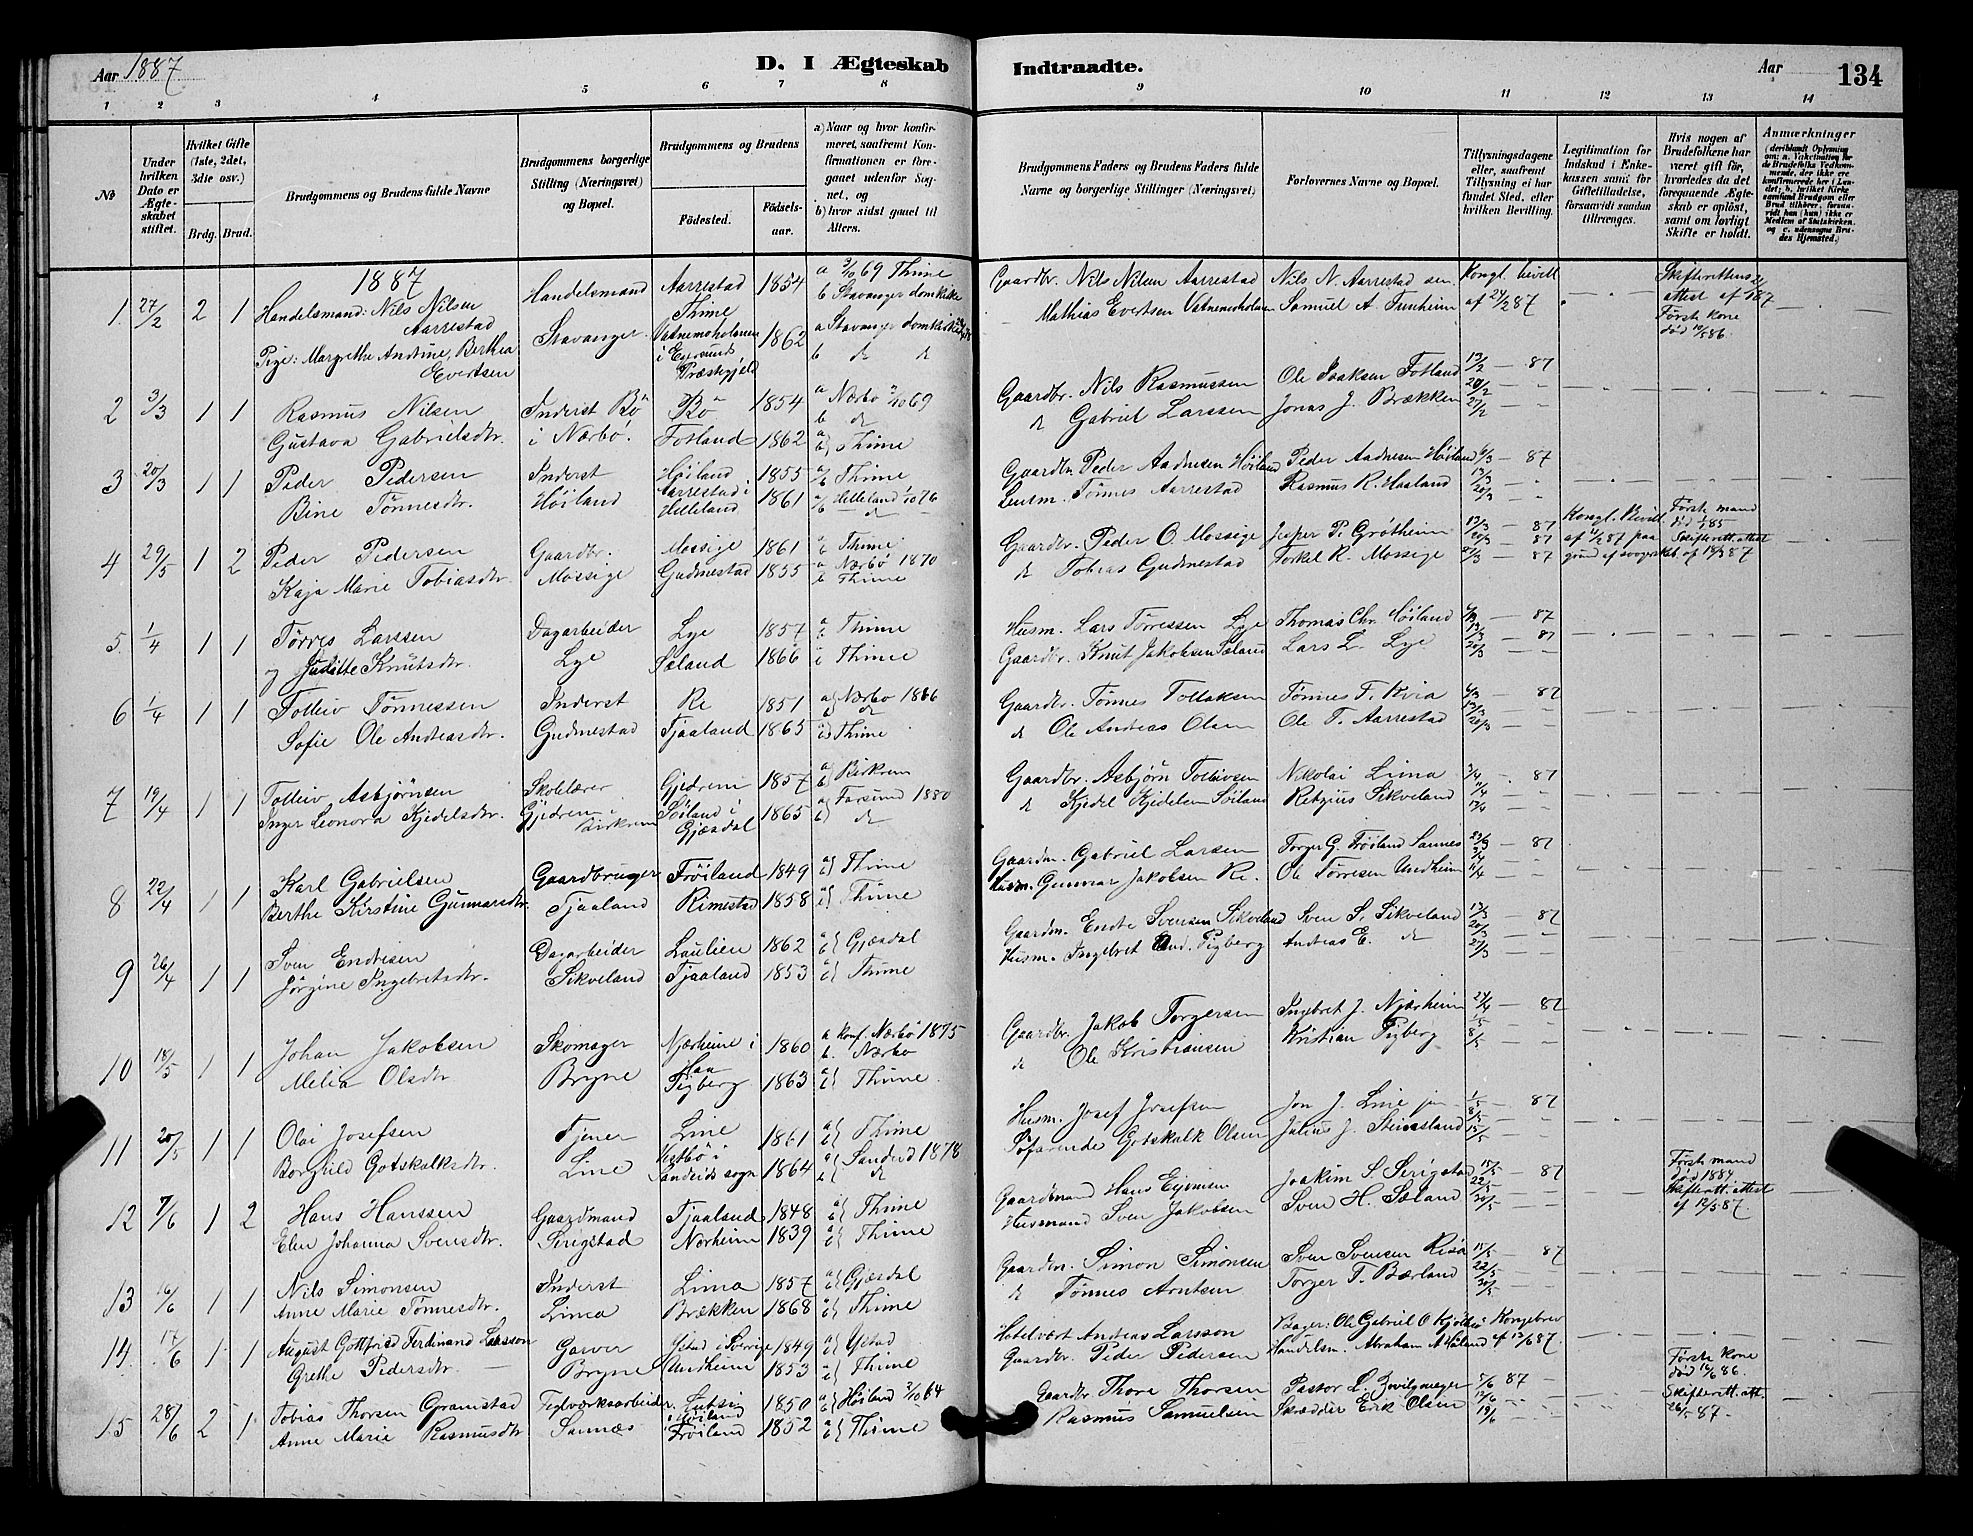 Aar 1887
D. I Ægteskab Indtraadte.
Aar
134
1 2 3 4 5 6 7 8 9 10 11 12 13 14
№
Under hvilken Dato er Ægteskabet stiftet.
Hvilket Gifte (1ste, 2det, 3die osv.)
Brdg. Brud.
Brudgommens og Brudens fulde Navne
Brudgommens borgerlige Stilling (Næringsvei) og Bopæl.
Brudgommens og Brudens
Fødested.
Fødselsaar.
a) Naar og hvor konfirmeret, saafremt Konfirmationen er foregaaet udenfor Sognet, og
b) hvor sidst gaaet til Alters.
Brudgommens Faders og Brudens Faders fulde Navne og borgerlige Stillinger (Næringsvei)
Forlovernes Navne og Bopæl.
Tillysningsdagene eller, saafremt Tillysning ei har fundet Sted, efter hvilken Bevilling.
Legitimation for Indskud i Enkekassen samt for Giftetilladelse, forsaavidt saadan tiltrænges.
Hvis nogen af Brudefolkene har været gift før, hvorledes da det foregaaende Ægteskab er opløst, samt om lovligt Skifte er holdt.
Anmærkninger
1887
1. 27/2 2 1 Handelsmand: Nils Nilsen Aarrestad Handelsmand Aarrestad Thime 1854 a 3/10 69 Thime b Stavanger domkirke
Gaardbr. Nils Nilsen Aarrestad Nils N. Aarrestad sen. Kongl. bevill af 24/2 87 Skifterettens attest af
Pige: Margrethe Andrine Berthea Evertsen Stavanger Vatnemoholmen i Egersunds Præstegjeld 1862 a Stavanger domkirke b do do
Mathias Evertsen Vatnemoholmen Samuel A. Tunheim Første kone død 10/5 86.
2 3/3 1 1 Rasmus Nilsen Inderst Bö Bö 1854 a Nærbo 3/10 69 b do
Gaardbr. Nils Rasmussen Ole Isaksen Fotland 13/2 — 87
Gustava Gabrielsdtr. i Nærbö. Fotland 1862 a b Thime
do Gabriel Larssen Jonas J. Brækken 20/2 27/2
3 20/3 1 1 Peder Pedersen Inderst Höiland 1855 a b Thime
Gaardbr. Peder Aadnesen Höiland Peder Aadnesen Höiland 6/3 — 87
Bine Tönnesdtr. Höiland Aarrestad i Helleland 1861 a Helleland 1/10 76 b do
Lensm. Tönnes Aarrestad Rasmus R. Haaland 13/3 20/3
4 29/5 1 2 Peder Pedersen Gaardbr. Mossige 1861 a b Thime
Gaardbr. Peder O. Mossige Jesper P. Grötheim 13/3 — 87 20/3 — 87 Kongl. Bevill. af 87 paa grund af svogerskab Förste mand död 85 Skifterett. attest af 87
Kaja Marie Tobiasdtr. Mossige Gudmestad 1855 a Nærbö 1870 b Thime
do Tobias Gudmestad Torkel R. Mossige 27/3 — 87
5. 1/4 1 1 Törres Larssen Dagarbeider Lye 1857 a b Thime
Husm. Lars Törressen Lye Thomas Chr. Höiland 6/3 — 87
og Juditte Knutsdtr. Lye Sæland 1866 Thime
Gaardbr. Knut Jakobsen Sæland Lars L. Lye 13/3 — 87 20/3
6 1/4 1 1 Tolleiv Tönnessen Inderst Re 1851 a) Nærbo 1866 b) do
Gaardbr. Tönnes Tollaksen Tönnes T. Kvia 6/3 — 87
Sofie Ole Andreasdtr. Gudmestad Tjaaland 1865 Thime
do Ole Andreas Olsen Ole T. Aarrestad 13/3 20/3
7 19/4 1 1 Tolleiv Asbjörnsen Skolelærer Gjedrem 1857 a) b) Birkrem
Gaardbr. Asbjörn Tolleivsen Nikolai Lima 3/4 — 87
Inger Leonora Kjedelsdtr. Gjedrem i Birkrem Söiland i Gjæsdal 1865 a) Farsund 1880 b) do
do Kjedel Kjedelsen Söiland Retzius Sikveland 17/4
8 22/4 1 1 Karl Gabrielsen Gaardbruger Fröiland 1849 Thime
Gaardm. Gabriel Larsen Torger G. Fröiland Sannes — 87
Berthe Kirstine Gunnarsdtr. Tjaaland Rimestad 1858 Thime
Husm. Gunnar Jakobsen Re. Ole Törresen Undheim
9 26/4 1 1 Sven Endresen Dagarbeider Laulien 1862 Gjæsdal
Gaardm. Endre Svensen Sikveland Sven S. Sikveland 13/3 20/3 — 87
Jörgine Ingebretsdtr. Sikveland Tjaaland 1853 Thime
Husm. Ingebret End. Tigberg Andreas E. do 27/3
10 18/5 1 1 Johan Jakobsen Skomager Njærheim i Haa 1860 a konf. Nærbö 1875 b. Nærbo
Gaardbr. Jakob Torgersen Ingebret J. Njærheim 24/4 — 87
Melia Olsdtr Bryne Tigberg 1863 Thime
do Ole Kristiansen Kristian Tigberg 1/5 8/5
11 20/5 1 1 Olai Josefsen Tjener Line 1861 Thime
Husm. Josef Josefsen Jon J. Line jun 1/5 — 87
Borghild Gotskalksdtr. Line Vestbö i Sandeids sogn 1864 a) Sandeid 1878 b) do
Söfarende Gotskalk Olsen Julius J. Steinsland 8/5 15/5
12 7/6 1 2 Hans Hanssen Gaardmand Tjaaland 1848 Thime
Gaardmand Hans Joakim S. Serigstad 15/5 — 87 22/5 Förste mand död 1884 Skifterett. attest af 12/5 87.
Elen Johanna Svensdtr. Serigstad Norheim 1839 Thime
Husmand Sven Jakobsen Sven H. Sæland 30/5
13 16/6 1 1 Nils Simonsen Inderst Lima 1857 Gjæsdal
Gaardm. Simon Simonsen Sven Svensen Risa 15/5 — 87
Anne Marie Tönnesdtr. Lima Brækken 1868 Thime
do Tönnes Arntsen Torger T. Bærland 22/5 30/5
14. 17/6 1 1 August Gottfried Ferdinand Larsson Garver Ystad i Sverige 1849 Ystad
Hotelvært Andreas Larsson Bager: Ole Gabriel O Kjölder Kongebrev af 13/6 87.
Grethe Pedersdtr. Bryne Undheim 1853 Thime
Gaardbr. Peder Pedersen Handelsm. Abraham A Haland
15 28/6 2 1 Tobias Thorsen Gramstad Teglværksarbeider. Lutsi i Höiland 1850 Höiland 2/10 64
Gaardbr. Thore Thorsen Pastor L. Zwilgmeyer 5/6 87 Förste kone död 86. Skifterett. att. 26/5 87.
Anne Marie Rasmusdtr Sannæs Fröiland 1852 Thime
Rasmus Samuelsen Skrædder Erik Olsen 12/6 19/6